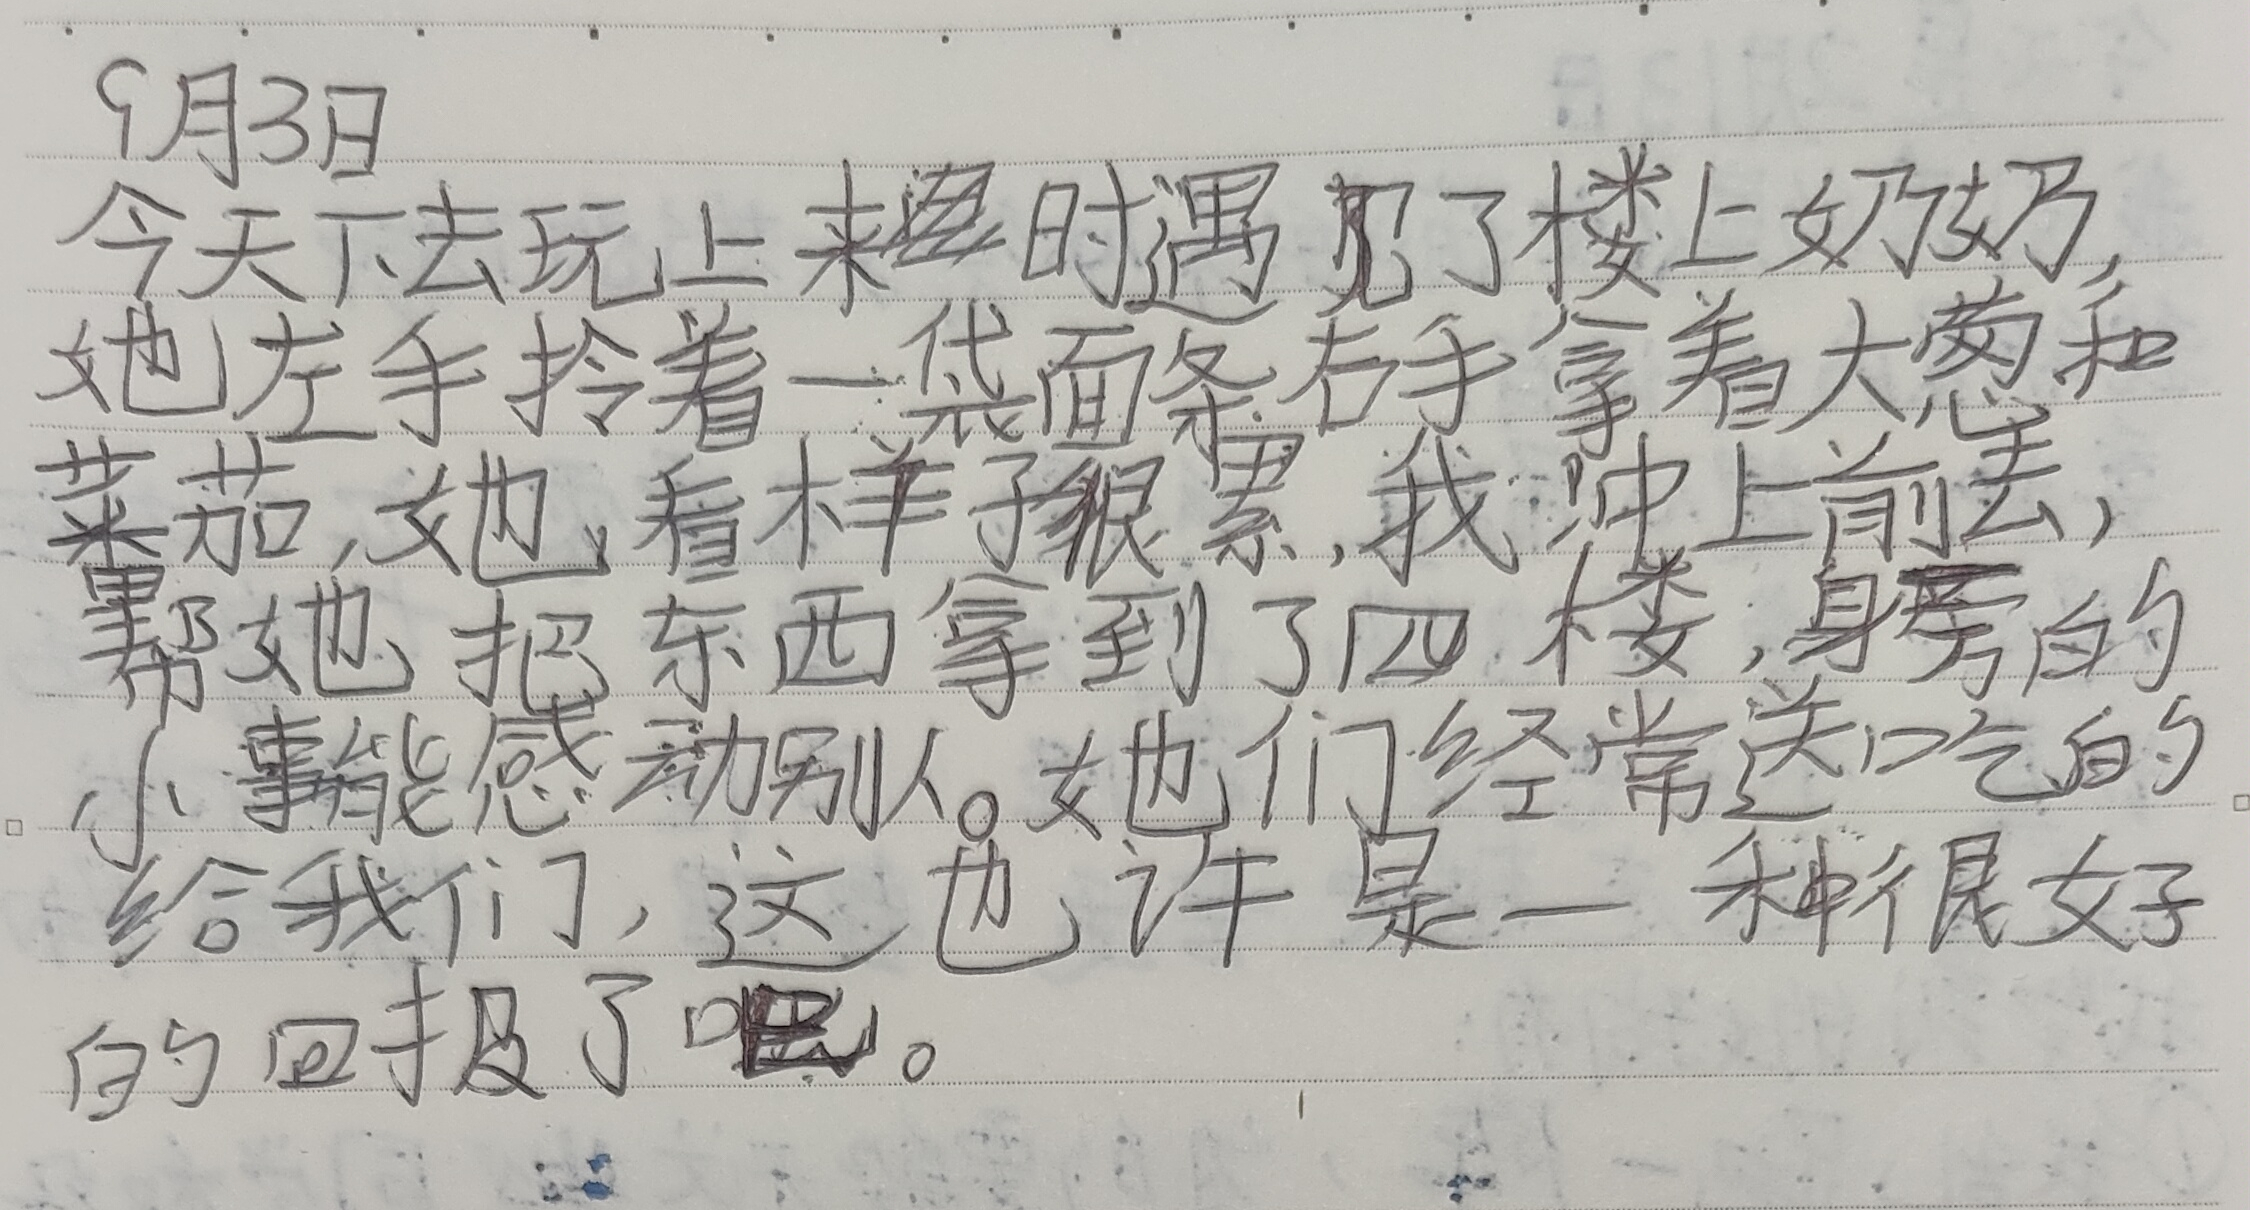 9月3日
今天下去玩上来时遇见了楼上奶奶,
她左手拎着一袋面条右手拿着大葱和
菜茄,她,看样子很累,我冲上前去,
帮她把东西拿到了四楼,身旁的
小事能感动别人。她们经常送吃的
给我们,这也许是一种很好
的回报了吧。